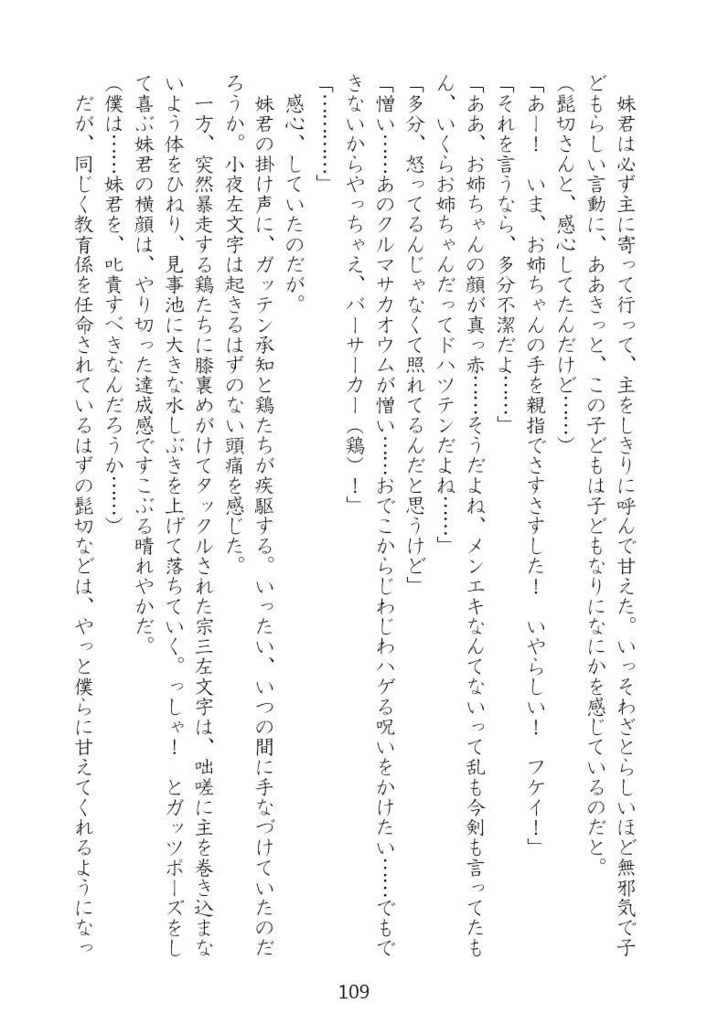 妹君は必ず主に寄って行って、主をしきりに呼んで甘えた。いっそわざとらしいほど無邪気で子
どもらしい言動に、ああきっと、この子どもは子どもなりになにかを感じているのだと。
（髭切さんと、感心してたんだけど……）
「あー！　いま、お姉ちゃんの手を親指でさすさすした！　いやらしい！　フケイ！」
「それを言うなら、多分不潔だよ……」
「ああ、お姉ちゃんの顔が真っ赤……そうだよね、メンエキなんてないって乱も今剣も言ってたも
ん、いくらお姉ちゃんだってドハツテンだよね……」
「多分、怒ってるんじゃなくて照れてるんだと思うけど」
「憎い……あのクルマサカオウムが憎い……おでこからじわじわハゲる呪いをかけたい……でもで
きないからやっちゃえ、バーサーカー（鶏）！」
「…………」
　感心、していたのだが。
　妹君の掛け声に、ガッテン承知と鶏たちが疾駆する。いったい、いつの間に手なづけていたのだ
ろうか。小夜左文字は起きるはずのない頭痛を感じた。
　一方、突然暴走する鶏たちに膝裏めがけてタックルされた宗三左文字は、咄嗟に主を巻き込まな
いよう体をひねり、見事池に大きな水しぶきを上げて落ちていく。っしゃ！　とガッツポーズをし
て喜ぶ妹君の横顔は、やり切った達成感ですこぶる晴れやかだ。
（僕は……妹君を、叱責すべきなんだろうか……）
　だが、同じく教育係を任命されているはずの髭切などは、やっと僕らに甘えてくれるようになっ
109